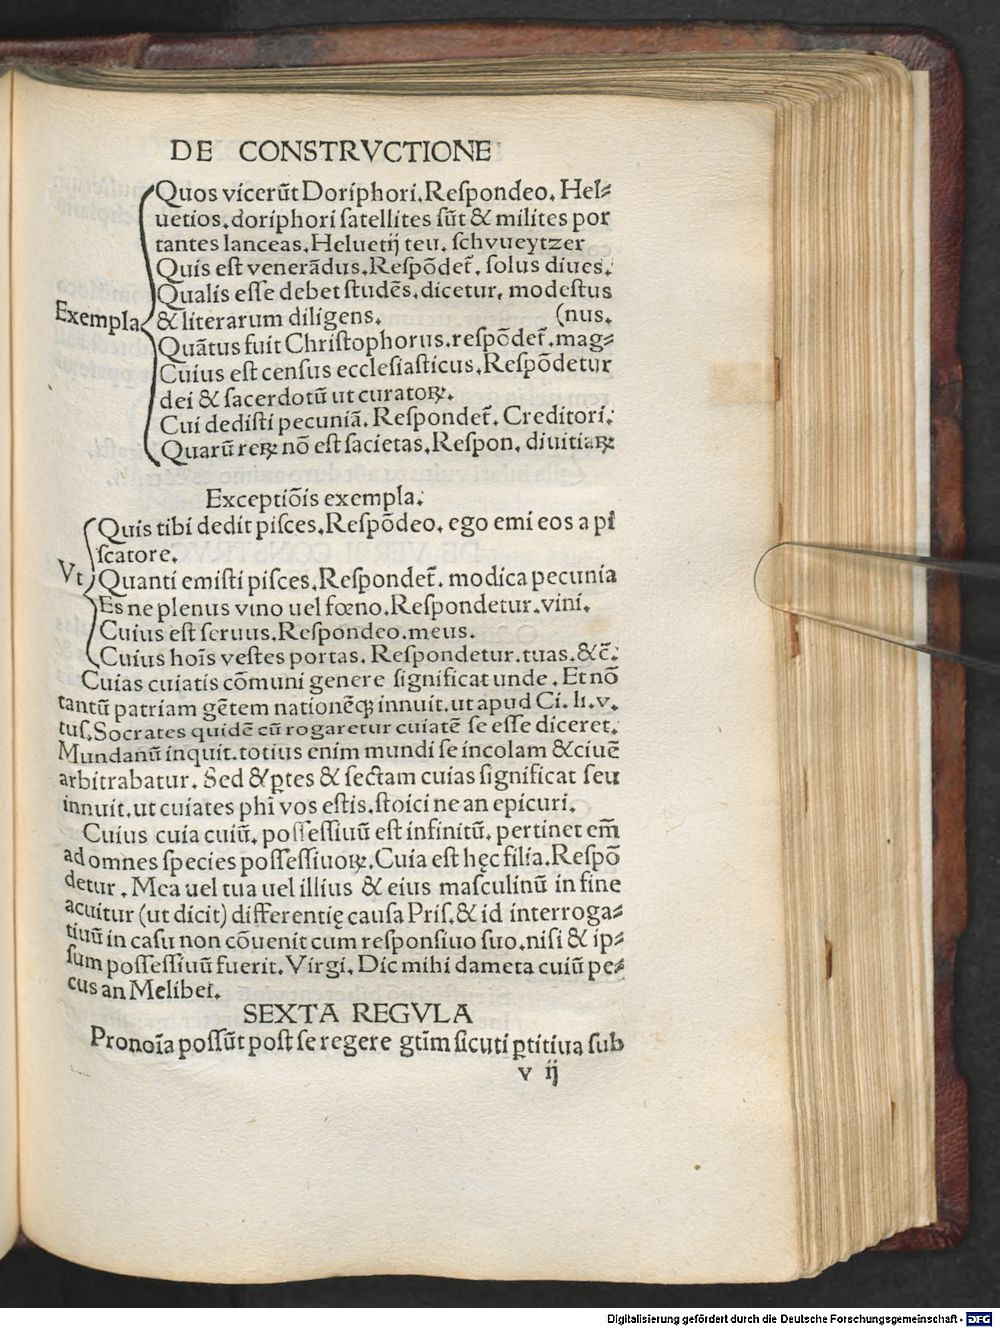 DE CONSTRVCTIONE
Quos vicerũt Doriphori. Respondeo. Hel⸗
uetios. doriphori satellites sũt & milites por
tantes lanceas. Heluetij teu. schvueytzer
Quis est venerãdus. Respõdet̃. solus diues.
Qualis esse debet studẽs. dicetur. modestus
Exempla & literarum diligens. (nus.
Quãtus fuit Christophorus. respõdet̃. mag⸗
Cuius est census ecclesiasticus. Respõdetur
dei & sacerdotũ ut curatoꝝ.
Cui dedisti pecuniã. Respondet̃. Creditori.
Quarũ reꝝ nõ est sacietas. Respon. diuitiaꝝ
Exceptiõis exempla.
Quis tibi dedit pisces. Respõdeo. ego emi eos a pi
scatore.
Vt Quanti emisti pisces. Respondet̃. modica pecunia
Es ne plenus vino uel fœno. Respondetur. vini.
Cuius est seruus. Respondeo. meus.
Cuius hoĩs vestes portas. Respondetur. tuas. &c̃.
Cuias cuiatis cõmuni genere significat unde. Et nõ
tantũ patriam gẽtem nationẽq; innuit. ut apud Ci. li. v.
tus. Socrates quidẽ cũ rogaretur cuiatẽ se esse diceret.
Mundanũ inquit. totius enim mundi se incolam & ciuẽ
arbitrabatur. Sed & ꝑtes & sectam cuias significat seu
innuit. ut cuiates phi vos estis. stoici ne an epicuri.
Cuius cuia cuiũ. possessiuũ est infinitũ. pertinet em̃
ad omnes species possessiuoꝝ. Cuia est hęc filia. Respõ
detur. Mea uel tua uel illius & eius masculinũ in fine
acuitur (ut dicit) differentię causa Pris. & id interroga⸗
tiuũ in casu non cõuenit cum responsiuo suo. nisi & ip⸗
sum possessiuũ fuerit. Virgi. Dic mihi dameta cuiũ pe⸗
cus an Melibei.
SEXTA REGVLA
Pronoĩa possũt post se regere gtĩm sicuti ꝑtitiua sub
v ij
Digitalisierung gefördert durch die Deutsche Forschungsgemeinschaft - DFG